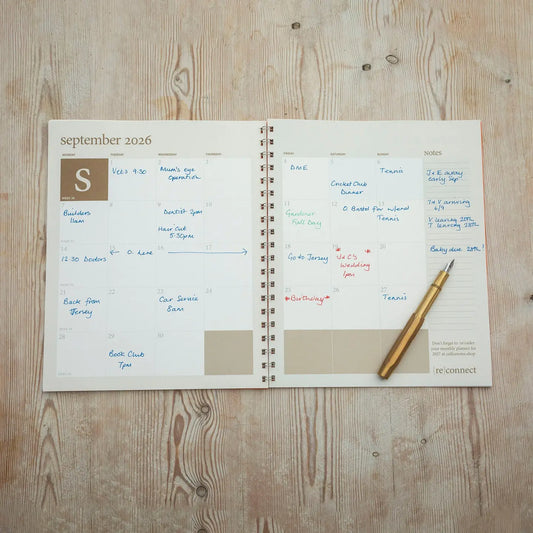 september 2026
MONDAY TUESDAY WEDNESDAY THURSDAY
S
1
2
3
Vets 9.30
Mum's eye
operation
7
8
9
10
Builders
11am
Dentist 2pm
Hair Cut
5.30pm
14
15
16
17
12.30 Doctors
O. here
21
22
23
24
Back from
Jersey
Car Service
8am
28
29
30
Book Club
7pm
FRIDAY SATURDAY SUNDAY
Notes
4
5
6
DME
Cricket Club
Dinner
Tennis
11
12
13
Gardener
Full Day
O. Bristol for w/end
Tennis
18
19
20
Go to Jersey
J+C's
Wedding
1pm
25
26
27
Birthday
Tennis
J+E away
early Sep
J+V arriving
V leaving 20th
T leaving 28th
Baby due 28th!
Don't forget to re-order
your monthly planner for
2027 at
[re]connect